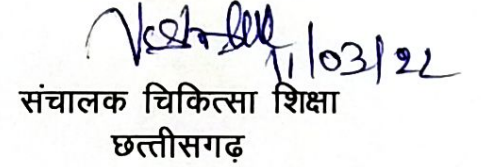 11/03/22
संचालक चिकित्सा शिक्षा
छत्तीसगढ़